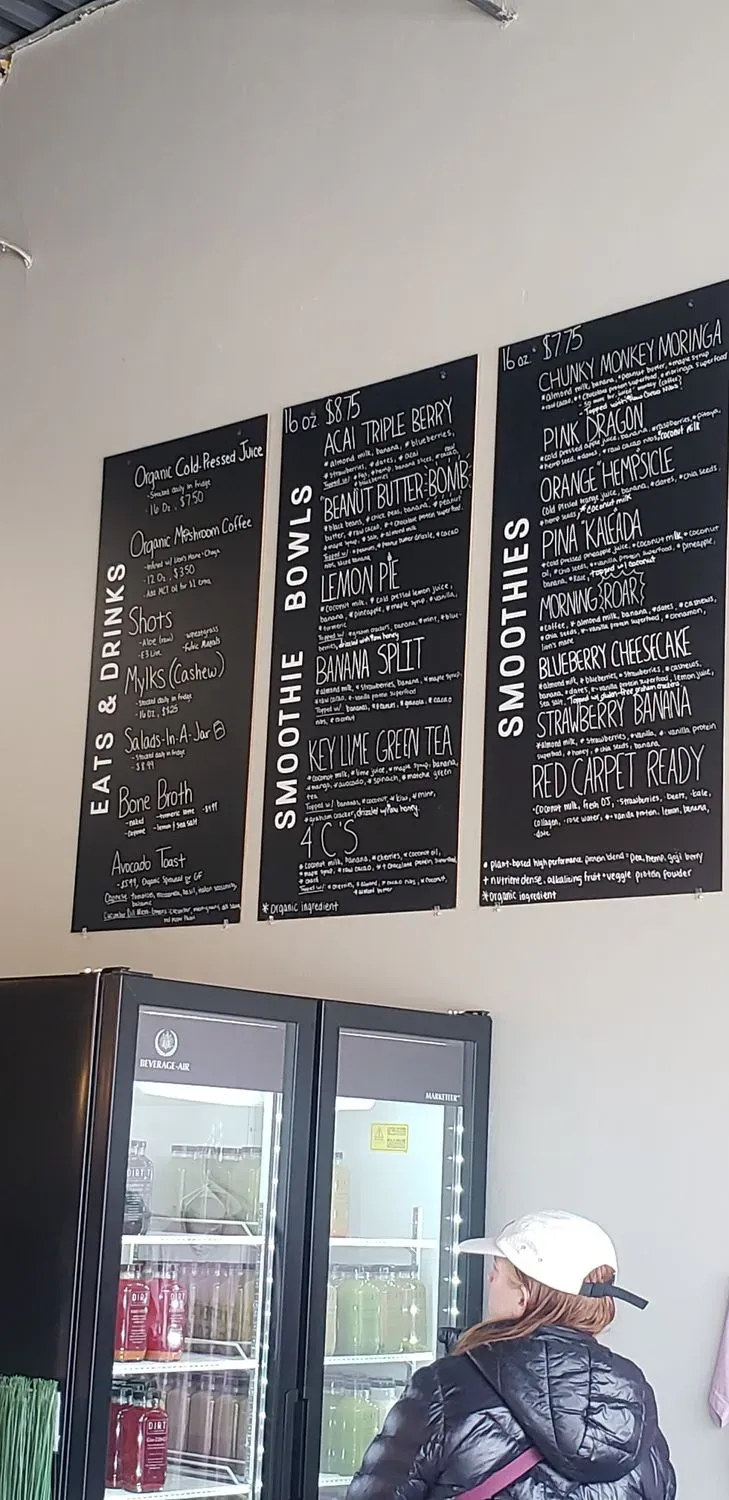 EATS & DRINKS
Organic Cold-Pressed Juice
-Stocked daily in fridge
-16 Oz. $7.50
Organic Mushroom Coffee
-Infused w/ Lion's Mane + Chaga
-12 Oz. $3.50
-Add MCT oil for $1 extra
Shots
-Aloe (raw) -wheatgrass
-E3 Live -Fulvic Minerals
Mylks (Cashew)
-Stocked daily in fridge
-16 Oz.
Salads-In-A-Jar
-Stocked daily in fridge
-$8.99
Bone Broth
-naked -turmeric tonic
-lemon / sea salt
Avocado Toast
-$5.99, Organic Sprouted or GF
SMOOTHIE BOWLS
16 oz. $8.75
ACAI TRIPLE BERRY
*almond milk, banana, *blueberries,
*strawberries, *dates, *acai
BEANUT BUTTER BOMB
*black beans, *chick peas, banana, *peanut
butter, *raw cacao, +chocolate protein superfood,
*maple syrup, *salt, *almond milk
LEMON PIE
*coconut milk, *cold pressed lemon juice,
banana, *pineapple, *maple syrup, *vanilla,
*turmeric
BANANA SPLIT
*almond milk, *strawberries, banana, *maple syrup,
*raw cacao, vanilla protein superfood
Topped w/: bananas, *peanuts, *granola, *cacao
nibs, *coconut
KEY LIME GREEN TEA
*coconut milk, *lime juice, *maple syrup, banana,
*mango, *avocado, *spinach, *matcha green
tea
Topped w/: bananas, *coconut, *kiwi, *mint,
*graham cracker, drizzled w/raw honey
4 C'S
*coconut milk, banana, *cherries, *coconut oil,
*maple syrup, *raw cacao, chocolate protein superfood,
*chard
Topped w/: *cherries, *almond, *cacao nibs, *coconut,
*almond butter
*Organic ingredient
SMOOTHIES
16 oz. $7.75
CHUNKY MONKEY MORINGA
*almond milk, banana, *peanut butter, *maple syrup
*raw cacao, chocolate protein superfood, *moringa superfood
PINK DRAGON
*cold pressed apple juice, banana, *raspberries, *pitaya,
*hemp seed, *dates, *raw cacao nibs, *coconut milk
ORANGE "HEMPSICLE
Cold Pressed orange juice, banana, *dates, *chia seeds,
*hemp seeds, *coconut milk
PINA "KALE"ADA
*cold pressed pineapple juice, *coconut milk, *coconut
oil, *chia seeds, vanilla protein superfood, *pineapple,
banana, *kale, topped w/ coconut
MORNING {ROAR}
*coffee, *almond milk, banana, *dates, *cashews,
*chia seeds, vanilla protein superfood, *cinnamon,
lion's mane
BLUEBERRY CHEESECAKE
*almond milk, *blueberries, *strawberries, *cashews,
banana, *dates, vanilla protein superfood, lemon juice,
sea salt, Topped w/ gluten-free graham crackers
STRAWBERRY BANANA
*almond milk, *strawberries, *vanilla, vanilla protein
superfood, *honey, *chia seeds, banana
RED CARPET READY
*coconut milk, fresh OJ, strawberries, beets, kale,
collagen, rose water, vanilla protein, lemon, banana,
date
plant-based high performance protein blend: pea, hemp, goji berry
+ nutrient dense, alkalizing fruit + veggie protein powder
*Organic ingredient
BEVERAGE-AIR
MARKETEER
DIRT
DIRT
DIRT
DIRT